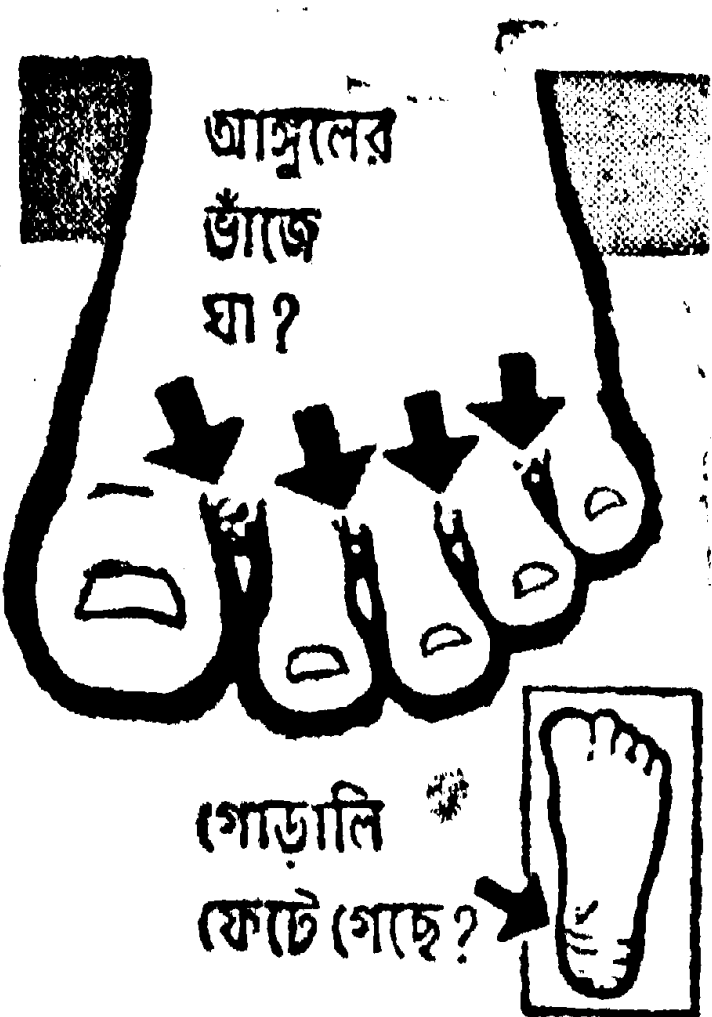 আঙ্গুলের
ভাঁজে
ঘা ?
গোড়ালি
ফেটে গেছে ?